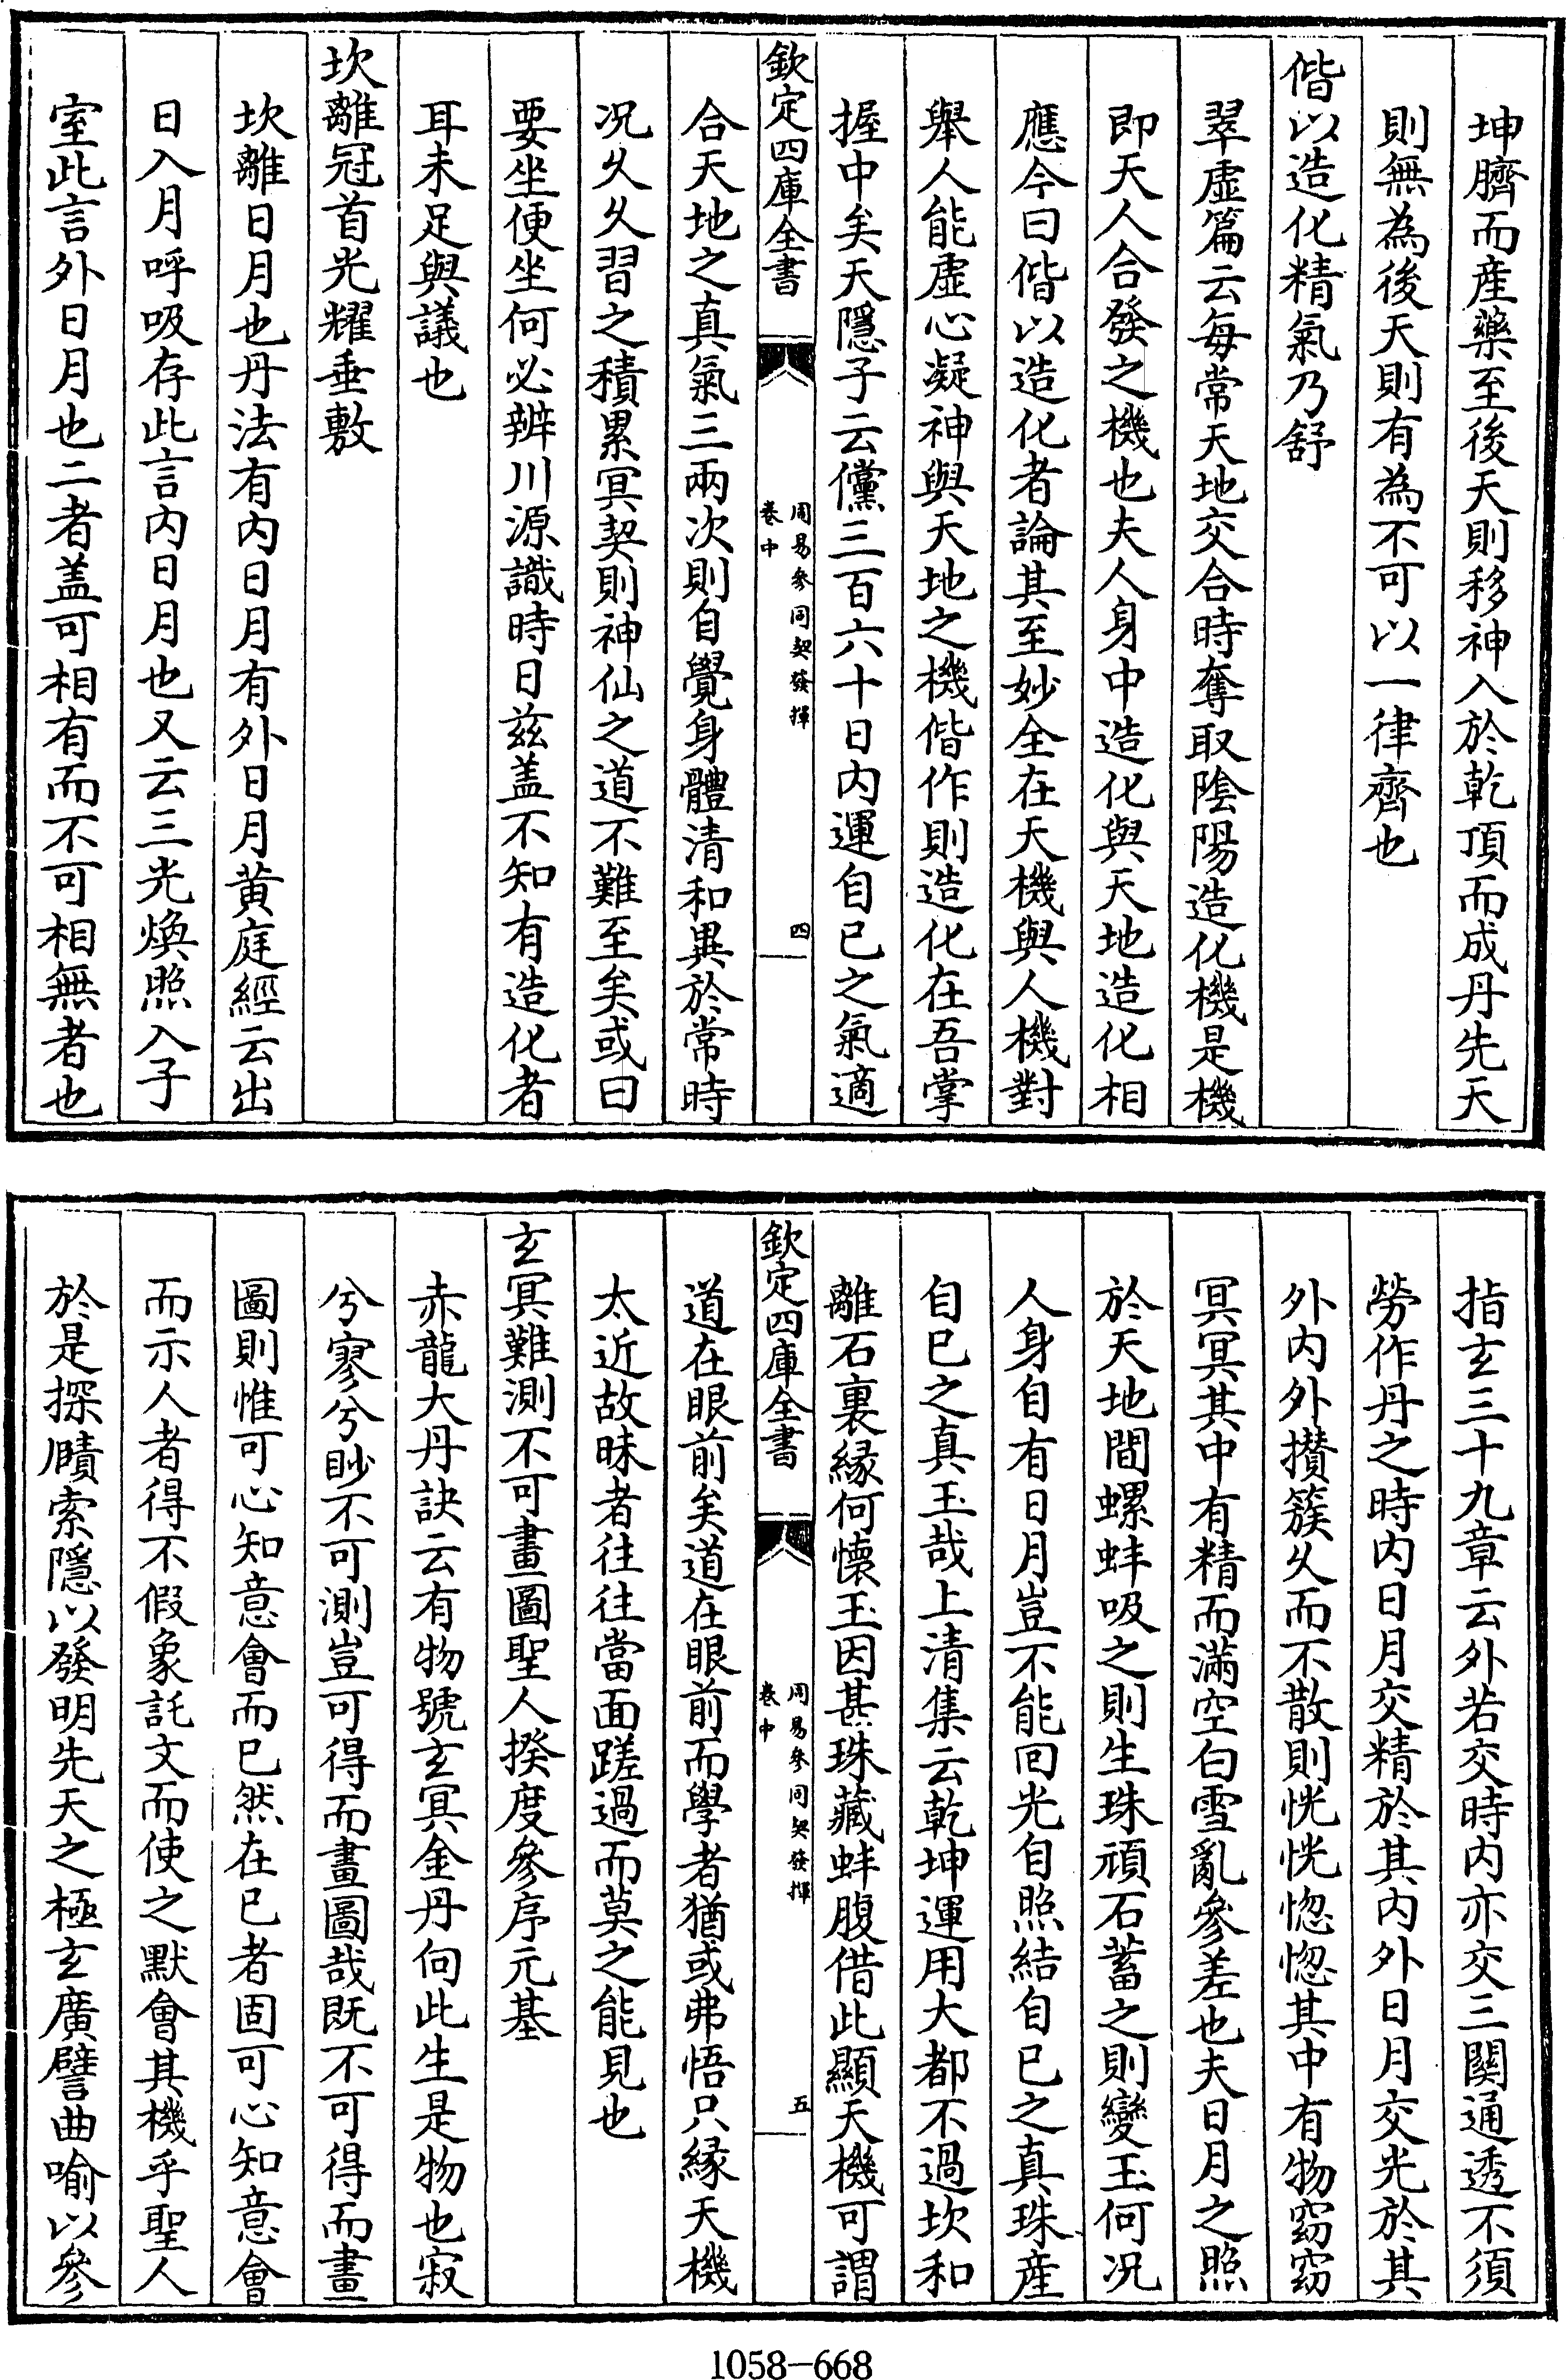 坤臍而産藥至後天則移神入於乾頂而成丹先天
則無為後天則有為不可以一律齊也
偕以造化精氣乃舒
翠虛篇云每常天地交合時奪取陰陽造化機是機
即天人合發之機也夫人身中造化與天地造化相
應今曰偕以造化者論其至妙全在天機與人機對
舉人能虛心凝神與天地之機偕作則造化在吾掌
握中矣天隱子云儻三百六十日内運自已之氣適
欽定四庫全書
周易參同契發揮
卷中
四
合天地之真氣三兩次則自覺身體清和異於常時
况久久習之積累冥契則神仙之道不難至矣或曰
要坐便坐何必辨川源識時日兹盖不知有造化者
耳未足與議也
坎離冠首光耀垂敷
坎離日月也丹法有内日月有外日月黄庭經云出
日入月呼吸存此言内日月也又云三光煥照入子
室此言外日月也二者盖可相有而不可相無者也
指玄三十九章云外若交時内亦交三關通透不須
勞作丹之時内日月交精於其内外日月交光於其
外内外攅簇久而不散則恍恍惚惚其中有物窈窈
冥冥其中有精而滿空白雪亂參差也夫日月之照
於天地間螺蚌吸之則生珠頑石蓄之則變玉何况
人身自有日月豈不能回光自照結自已之真珠産
自已之真玉哉上清集云乾坤運用大都不過坎和
離石裏緣何懷玉因甚珠藏蚌腹借此顯天機可謂
欽定四庫全書
周易參同契發揮
卷中
五
道在眼前矣道在眼前而學者猶或弗悟只緣天機
太近故昧者往往當面蹉過而莫之能見也
玄冥難測不可畫圖聖人揆度參序元基
赤龍大丹訣云有物號玄冥金丹向此生是物也寂
兮寥兮眇不可測豈可得而畫圖哉既不可得而畫
圖則惟可心知意會而已然在已者固可心知意會
而示人者得不假象託文而使之默會其機乎聖人
於是探賾索隱以發明先天之極玄廣譬曲喻以參
1058-668